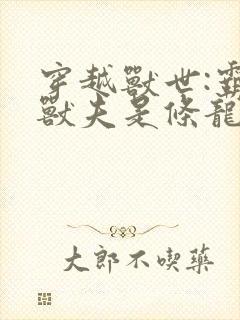 穿越獸世:霸
獸夫是條龍
大郎不喫藥